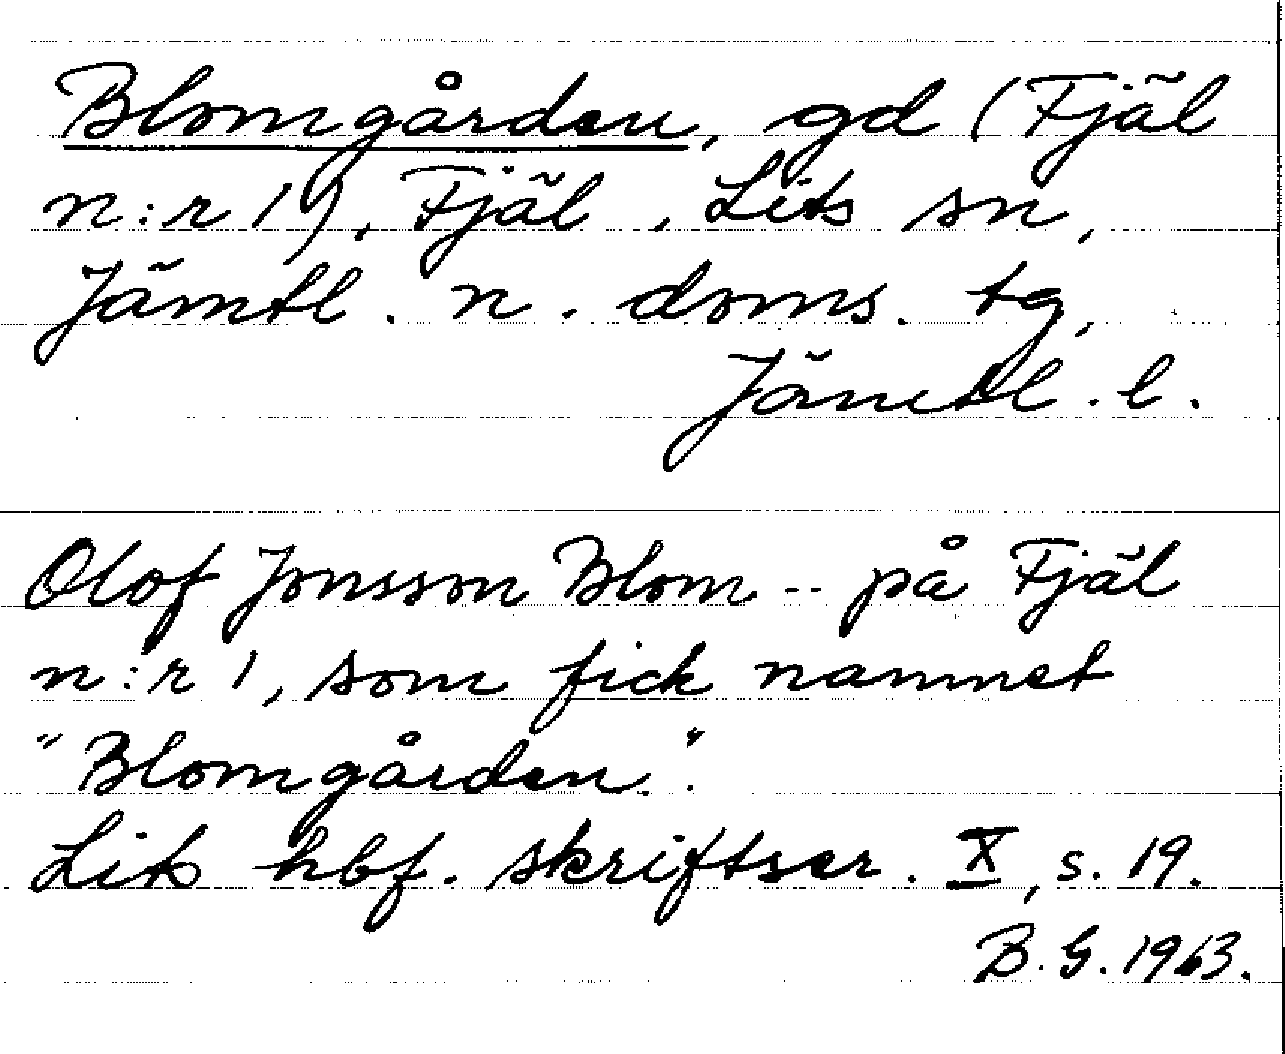 Blomgården, gd (Fjäl
n:r 1), Fjäl, Lits sn,
Jämtl. n. doms. tg,
Jämtl. l.
Olof Jonsson Blom -- på Fjäl
n:r 1, som fick namnet
"Blomgården".
Lits hbf. skriftser. X, s. 19.
B. G. 1963.